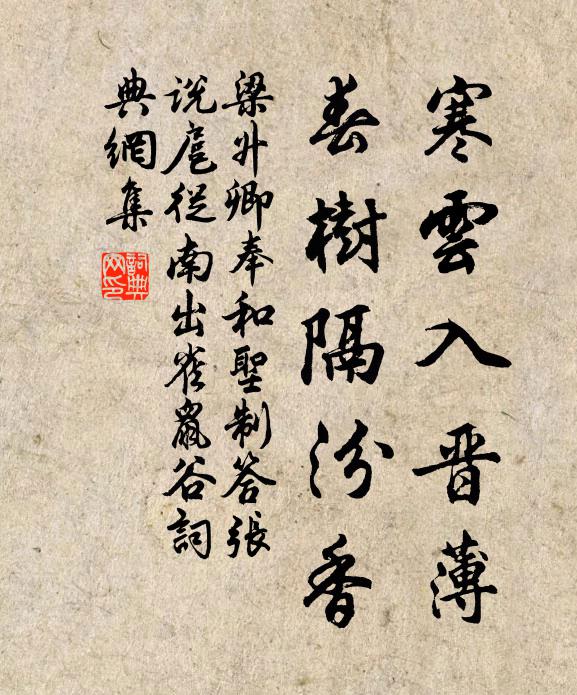 寒雲入晉薄
春樹隔汾香
梁升卿奉和聖制答張
說扈從南出雀鼠谷詞
典網集
詞典
网印